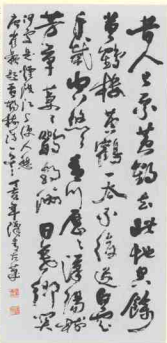 昔人已乘黄鶴去此地空餘
黄鶴樓黄鶴一去不復返白雲
千載空悠悠晴川歷歷漢陽樹
芳草萋萋鸚鵡洲日暮鄉關
何處是煙波江上使人愁